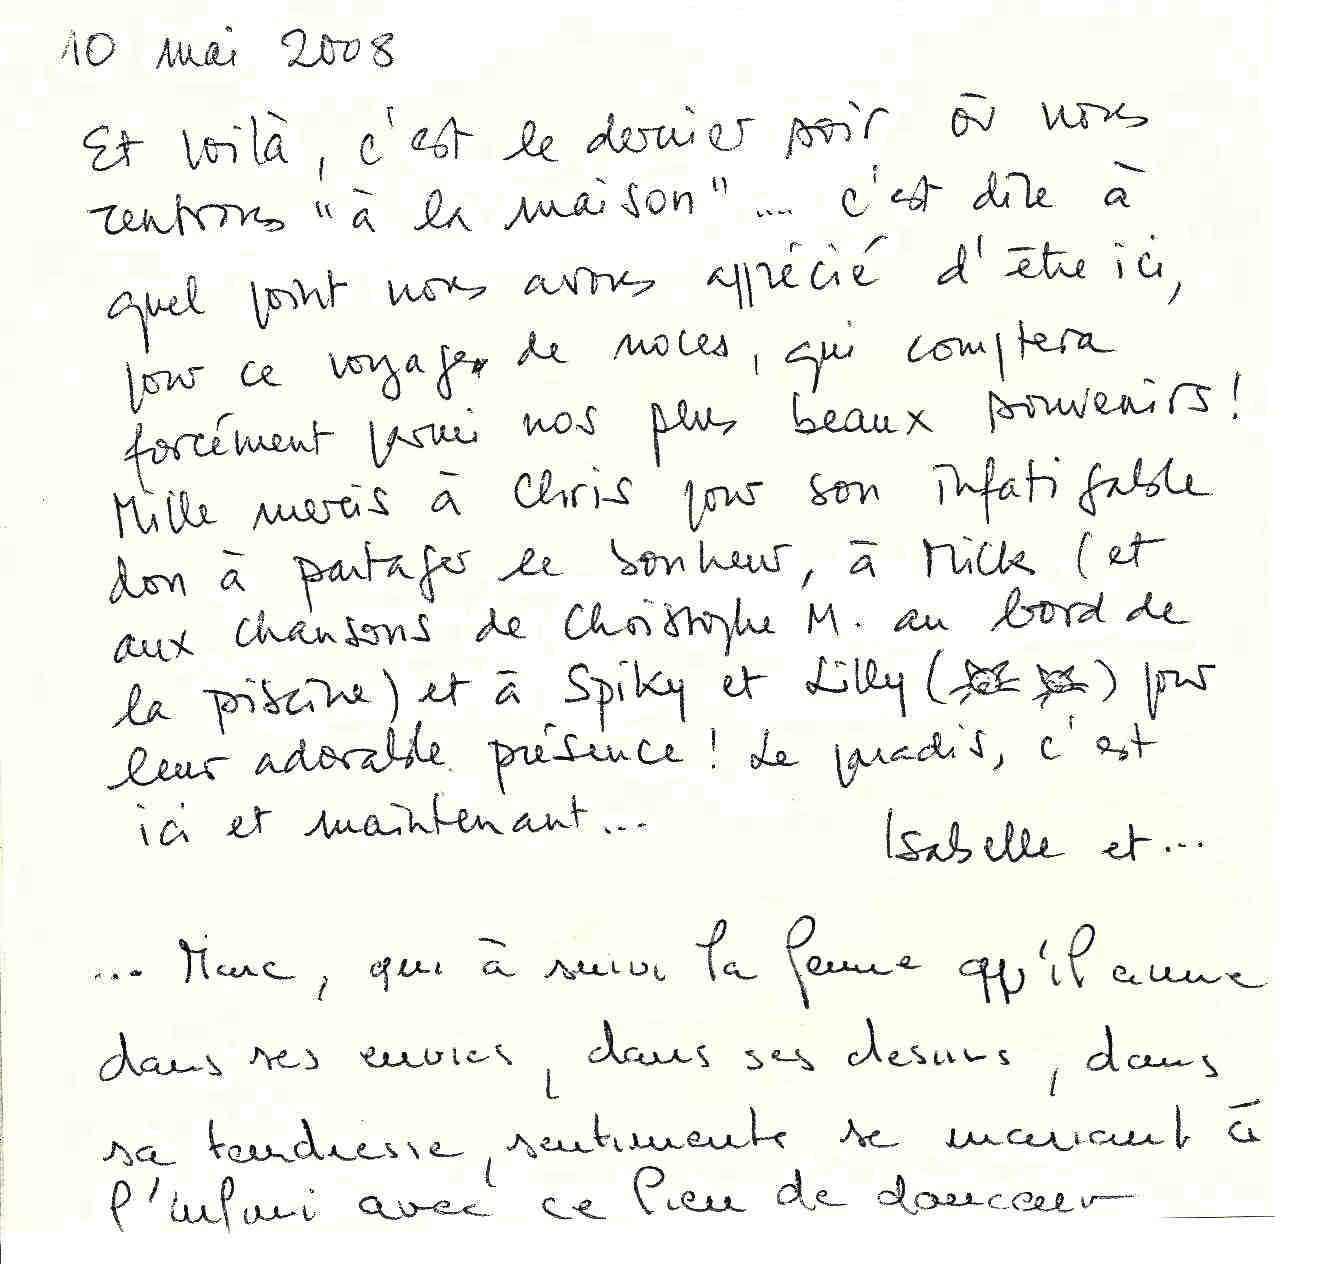 10 mai 2008
Et voilà, c'est le dernier soir où nous
rentrons "à la maison"... c'est dire à
quel point nous avons apprécié d'être ici,
pour ce voyage de noces, qui comptera
forcément parmi nos plus beaux souvenirs !
Mille mercis à Chris pour son infatigable
don à partager le bonheur, à Mick (et
aux chansons de Christophe M. au bord de
la piscine) et à Spiky et Lilly ( ) pour
leur adorable présence ! Le paradis, c'est
ici et maintenant...
Isabelle et...
... Marc, qui à suivi la femme qu'il aime
dans ses envies, dans ses desirs, dans
sa tendresse, sentiments se mariant à
l'infini avec ce lieu de douceur